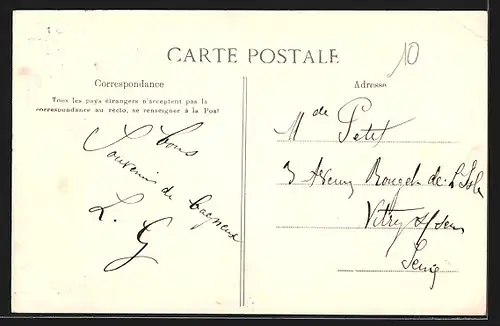 CARTE POSTALE
10
Correspondance
Tous les pays étrangers n'acceptent pas la
correspondance au recto, se renseigner à la Post
Bons
Souvenirs de Bagneux
L. G
Adresse
Mde Petit
3 Avenue Rouget de L'Isle
Vitry s/ Seine
Seine